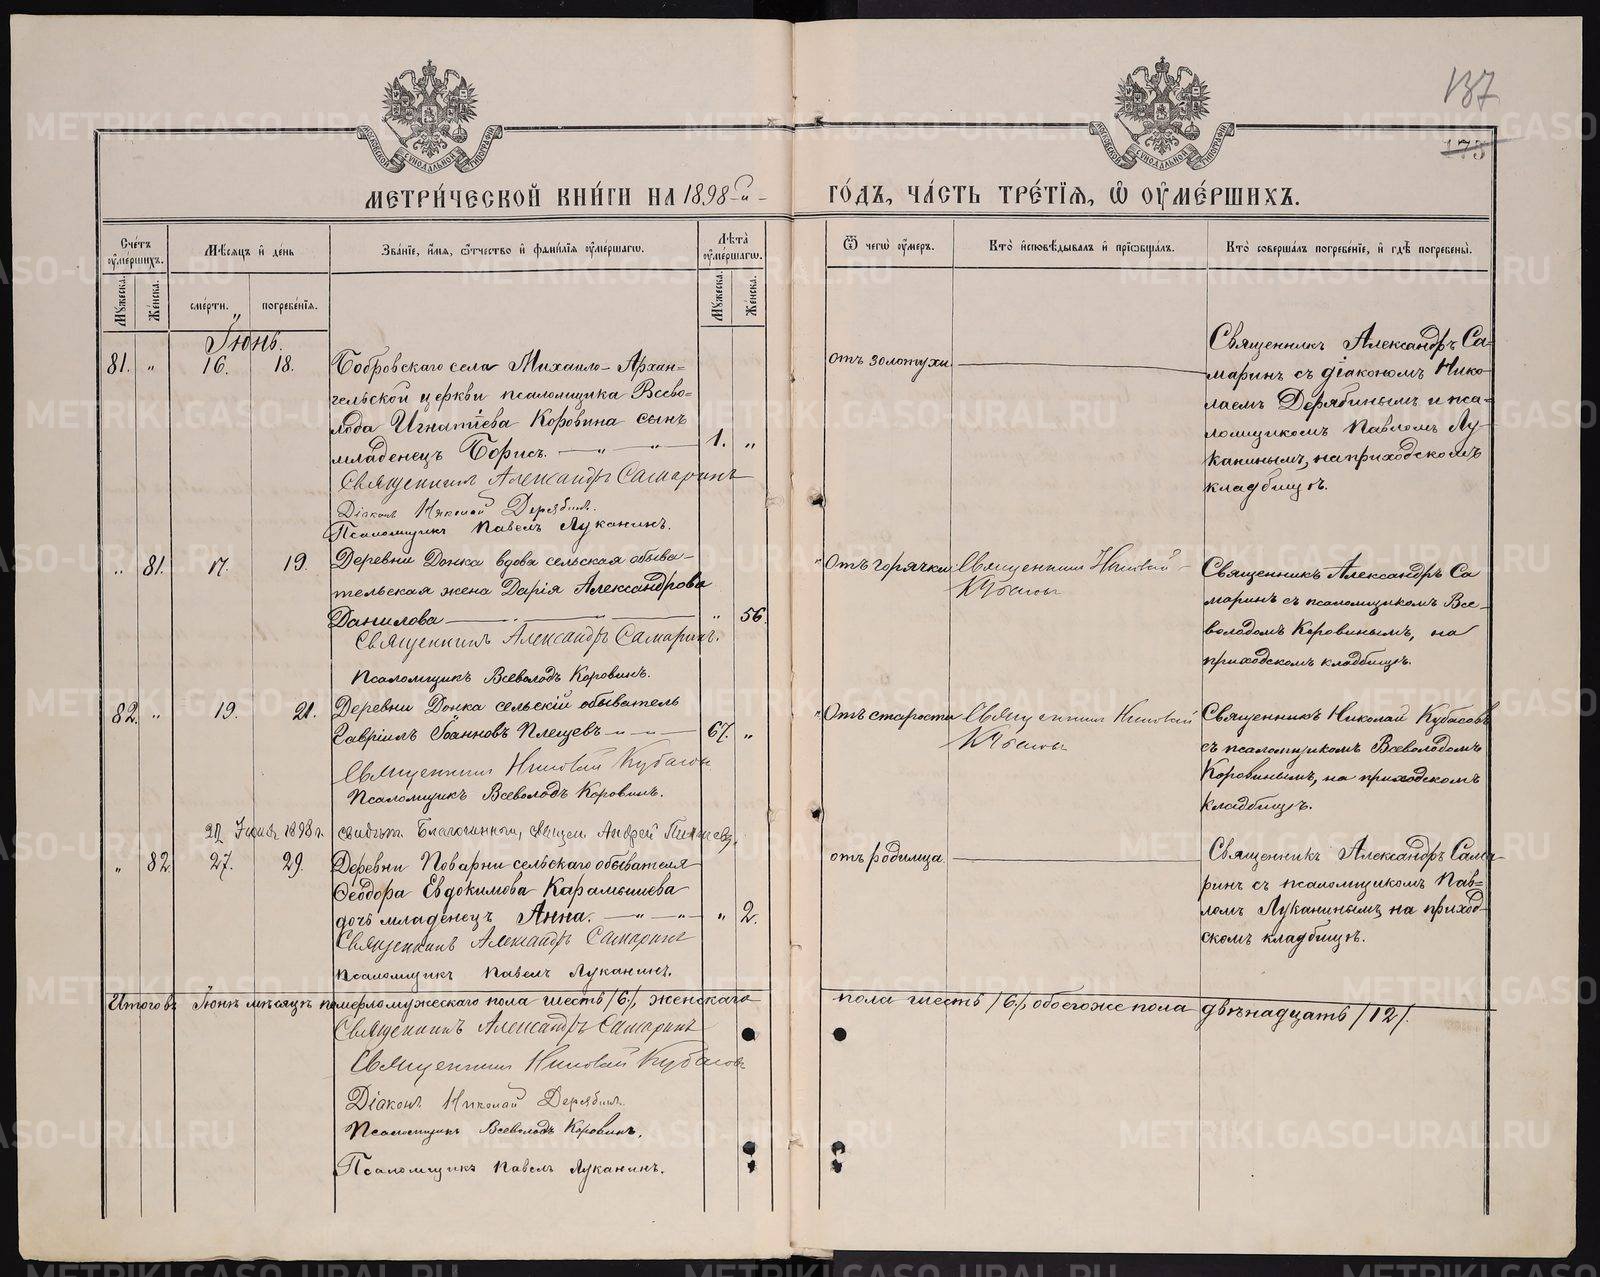 137
175
МОСКОВСКОЙ СѴНОДАЛЬНОЙ ТИПОГРАФІИ
МОСКОВСКОЙ СѴНОДАЛЬНОЙ ТИПОГРАФІИ
МЕТРИ́ЧЕСКОЙ КНИ́ГИ НА 1898-й- ГО́ДЪ, ЧА́СТЬ ТРЕ́ТІѦ, Ѡ҆ ОУ҆МЕ́РШИХЪ.
Счéтъ оу҆мéршихъ.
Мѣ́сѧцъ и҆ дéнь
Зва́нїе, и҆́мѧ, ѻ҆́тчество и҆ фами́лїѧ оу҆мéршагѡ.
Лѣ́та оу҆мéршагѡ.
Ѿ чегѡ̀ оу҆́меръ.
Кто̀ и҆сповѣ́дывалъ и҆ прїѡбща́лъ.
Кто̀ соверша́лъ погребéнїе, и҆ гдѣ̀ погребены̀.
Мꙋ́жеска.
Жéнска.
смéрти.
погребéнїѧ.
Мꙋ́жеска.
Жéнска.
Іюнь.
81. „ 16. 18. Бобровскаго села Михаило-Архан=
гельской церкви псаломщика Всево=
лода Игнатіева Коровина сынъ
младенецъ Борисъ. — „ — „ — 1. „
Священникъ Александръ Самаринъ
Діаконъ Николай Дерябинъ.
Псаломщикъ Павелъ Луканинъ.
отъ золотухи
Священникъ Александръ Са-
маринъ съ діакономъ Нико-
лаемъ Дерябинымъ и пса-
ломщикомъ Павломъ Лу-
канинымъ, на приходскомъ
кладбищѣ.
„ 81. 17. 19. Деревни Донка вдова сельская обыва-
тельская жена Дарія Александрова
Данилова — „ — „ 56.
Священникъ Александръ Самаринъ.
Псаломщикъ Всеволодъ Коровинъ.
Отъ горячки
Священникъ Николай
Кубасовъ
Священникъ Александръ Са
маринъ съ псаломщикомъ Все-
володомъ Коровинымъ, на
приходскомъ кладбищѣ.
82. „ 19. 21. Деревни Донка сельскій обыватель
Гавріилъ Іоанновъ Плещевъ — „ — „ — 67. „
Священникъ Николай Кубасовъ
Псаломщикъ Всеволодъ Коровинъ.
Отъ старости
Священникъ Николай
Кубасовъ
Священникъ Николай Кубасовъ
съ псаломщикомъ Всеволодомъ
Коровинымъ, на приходскомъ
кладбищѣ.
Іюня 1898 г. Благочинный, Андрей
„ 82. 27. 29. Деревни Поварни сельскаго обывателя
Ѳеодора Евдокимова Карамышева
дочь младенецъ Анна. — „ — „ — „ 2.
Священникъ Александръ Самаринъ
Псаломщикъ Павелъ Луканинъ.
отъ родимца.
Священникъ Александръ Сама-
ринъ съ псаломщикомъ Пав=
ломъ Луканинымъ, на приход-
скомъ кладбищѣ.
Итого въ Іюнѣ мѣсяцѣ померло мужескаго пола шесть /6/, женскаго пола шесть /6/, обоего же пола двѣнадцать /12/.
Священникъ Александръ Самаринъ
Священникъ Николай Кубасовъ
Діаконъ Николай Дерябинъ.
Псаломщикъ Всеволодъ Коровинъ.
Псаломщикъ Павелъ Луканинъ.
METRIKI.GASO-URAL.RU